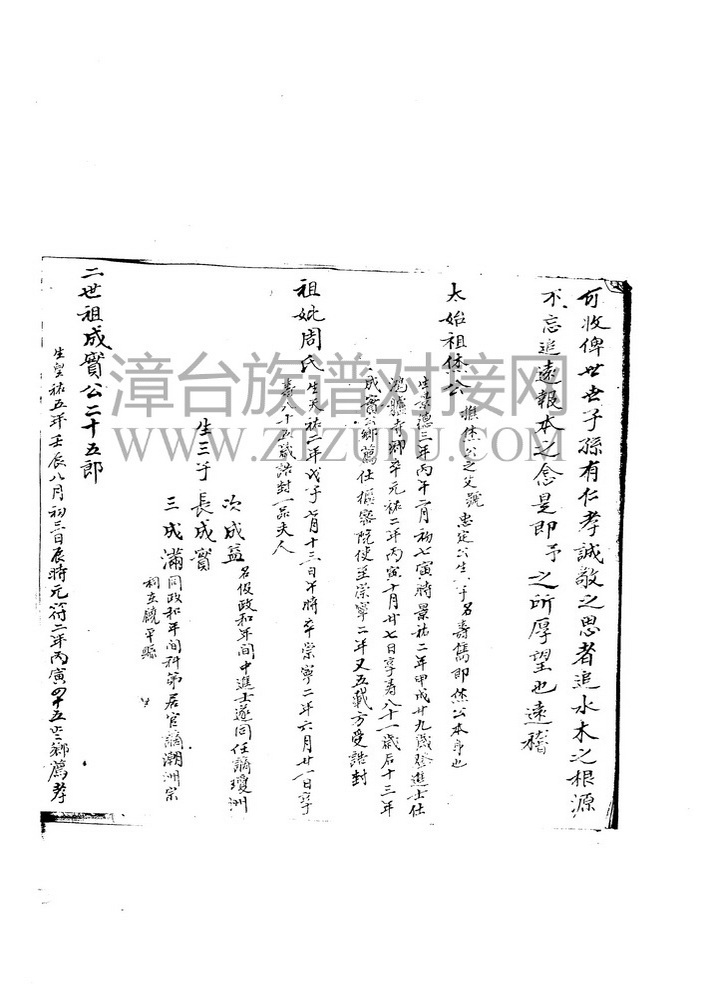 可收俾世世子孫有仁孝誠敬之思者追水木之根源
不忘追遠報本之念是即予之所厚望也遠稽
太始祖佚公 惟佚公之父號忠定公生八子名壽雋即佚公本身也
生景德三年丙午二月初七寅時景祐二年甲戌廿九歲登進士仕
鴻臚寺卿卒元祐二年丙寅十月廿七日享壽八十一歲后十三年
成實公鄉薦仕樞密院使至崇寧二年又五載方受誥封
祖妣周氏 生天祐二年戊子七月十三日午時卒崇寧二年六月廿一日享
壽八十五歲誥封一品夫人
生三子 長成實
次成益 名俊政和年間中進士遂同任謫瓊洲
三成滿 同政和年間科第居官謫潮洲宗
祠立饒平縣
二世祖成實公二十五郎
生皇祐五年壬辰八月初三日辰時元符二年丙寅四十五歲鄉薦孝
漳台族谱对接网
WWW.ZTZUPU.COM